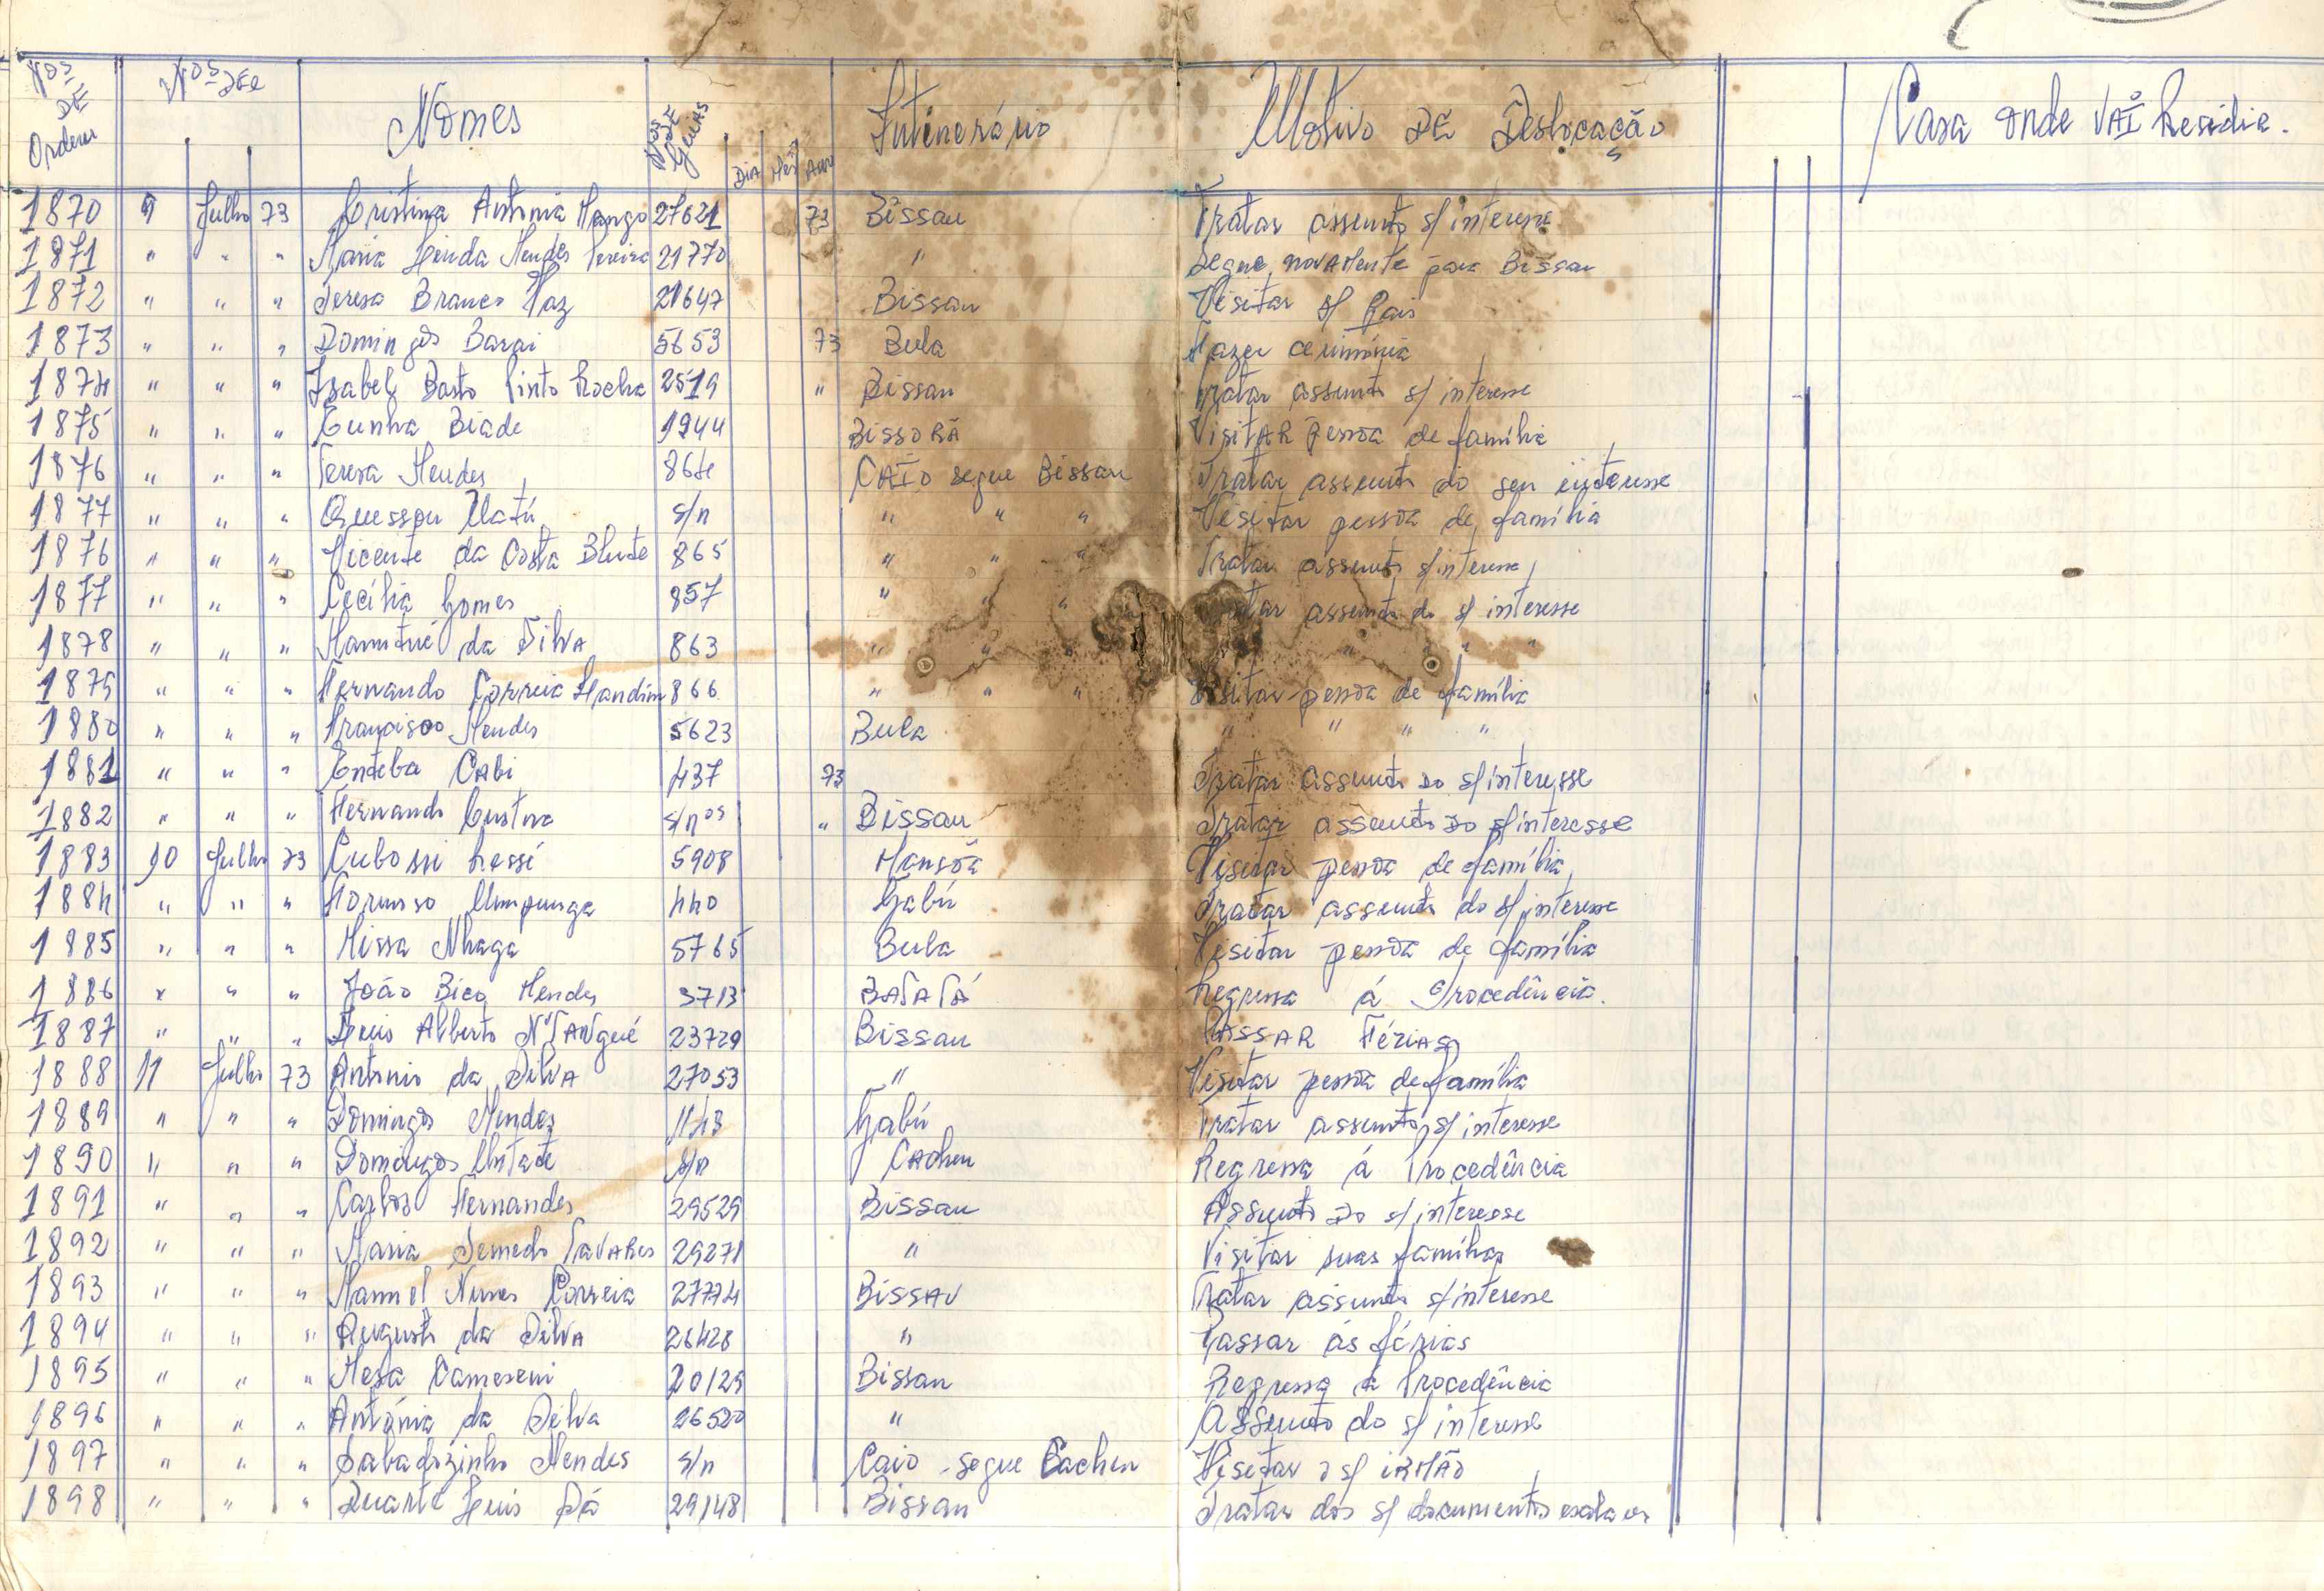 Nos DE Ordem Nos DE Nomes Nos DE Guias DIA Mês Ano Intinerário Motivo DE Deslocação Casa onde VAI Residir.
1870 9 Julho 73 Cristina Antonia Mango 27621 73 Bissau Tratar assunto s/ interesse
1871 " " " Maria Mendes Pereira 21770 " Segue novamente para Bissau
1872 " " " Teresa Branco Vaz 21647 Bissau Visitar s/ Pais
1873 " " " Domingos Barai 5653 73 Bula Fazer cerimónia
1874 " " " Isabel Basto Pinto Rocha 2519 " Bissau Tratar assunto s/ interesse
1875 " " " Cunha Biade 1944 BissoRÃ VisitAR pessoa de família
1876 " " " Teresa Mendes 864 CAIO segue Bissau Tratar assunto do seu interesse
1877 " " " Quessou s/n " " " Visitar pessoa de família
1876 " " " Vicente da Costa 865 " " " Tratar assunto s/ interesse
1877 " " " Cecília Gomes 857 " " " Tratar assunto do s/ interesse
1878 " " " da SilvA 863 " " " " " "
1879 " " " Fernando Correia 866 " " " Visitar pessoa de família
1880 " " " Francisco Mendes 5623 Bula " " " "
1881 " " " Enteba CAbi 437 73 Tratar assunto do s/ interesse
1882 " " " Fernando s/nos " Bissau Tratar assunto do s/ interesse
1883 10 Julho 73 Cubossi 5908 Mansõa Visitar pessoa de família
1884 " " " 440 Gabú Tratar assunto do s/ interesse
1885 " " " Missa Nhaga 5765 Bula Visitar pessoa de família
1886 " " " João Bico Mendes 3713 BAfATÁ Regressa á Procedência.
1887 " " " Luis Alberto N'TANgué 23729 Bissau PASSAR FériAs
1888 11 Julho 73 Antonio da SilvA 27053 " Visitar pessoa de família
1889 " " " Domingos Mendes Gabú Tratar assunto s/ interesse
1890 " " " Domingos s/n CAcheu Regressa á Procedência
1891 " " " Carlos Fernandes 29529 Bissau Assunto do s/ interesse
1892 " " " Maria Semedo TavARes 29271 " Visitar suas famílias
1893 " " " Manuel Nunes Correia 27774 BissAU Tratar assunto s/ interesse
1894 " " " Augusto da SilvA 26428 " Passar ás férias
1895 " " " 20129 Bissau Regressa á Procedência
1896 " " " Antónia da Silva 26520 " Assunto do s/ interesse
1897 " " " Sabadozinho Mendes s/n Caio - segue Cacheu Visitar o s/ iRMÃO
1898 " " " Duarte Luis Sá 29148 Bissau Tratar dos s/ documentos